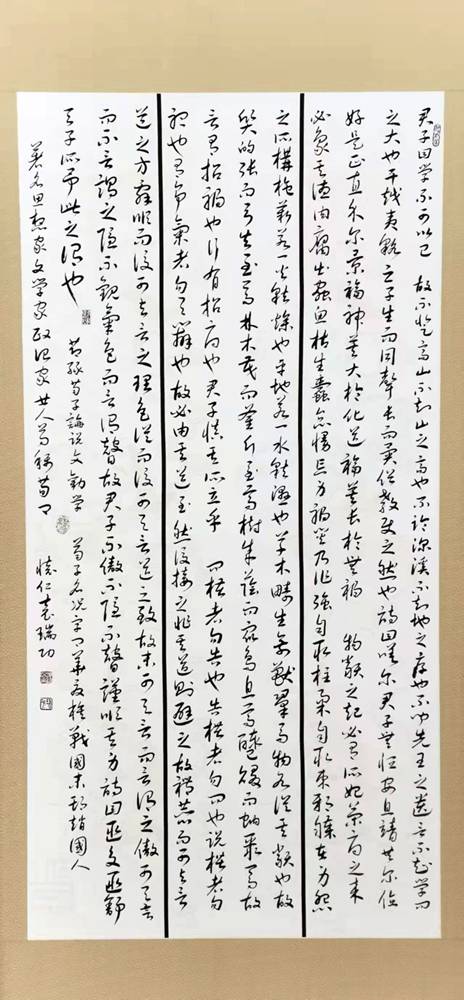 君子曰學不可以已 故不登高山不知山之高也不臨深溪不知地之厚也不聞先王之遺言不知學問
之大也干越夷貉之子生而同聲長而異俗教使之然也詩曰嗟爾君子無恒安息靖共爾位
好是正直介爾景福神莫大於化道福莫長於無禍 物類之起必有所始榮辱之來
必象其德肉腐出蟲魚枯生蠹怠慢忘身禍災乃作強自取柱柔自取束邪穢在身怨
之所構施薪若一火就燥也平地若一水就濕也草木疇生禽獸群焉物各從其類也故
質的張而弓矢至焉林木茂而斧斤至焉樹成蔭而眾鳥息焉醯酸而蚋聚焉故
言有招禍也行有招辱也君子慎其所立乎 問楛者勿告也告楛者勿問也說楛者勿
聽也有爭氣者勿與辯也故必由其道至然後接之非其道則避之故禮恭而可與言
道之方辭順而後可與言道之理色從而後可與言道之致故未可與言而言謂之傲可與言
而不言謂之隱不觀氣色而言謂瞽故君子不傲不隱不瞽謹順其身詩曰匪交匪舒
天子所予此之謂也 節錄荀子論說文勸學 荀子名況字卿華夏族戰國末期趙國人
著名思想家文學家政治家世人尊稱荀卿 懷仁袁瑞功